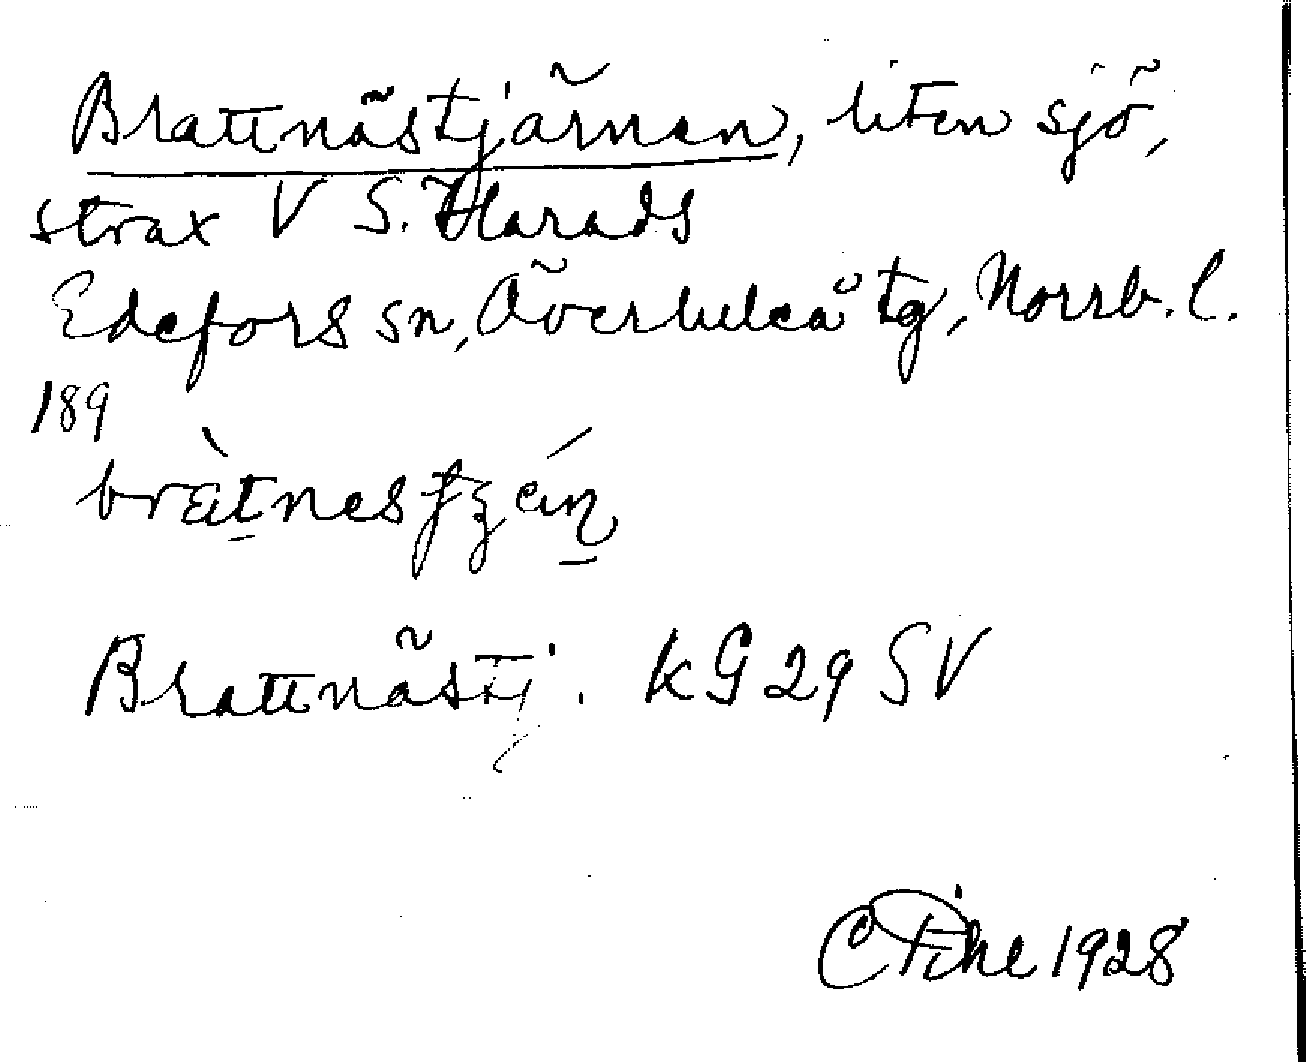 Brattnästjärnen, liten sjö,
strax V S. Harads
Edefors sn, Överluleå tg, Norrb. l.
189
Brattnästj. KG 29 SV
C Pihl 1928